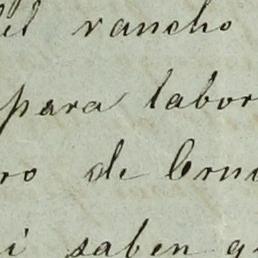 el rancho
para labor
ro de Cruc
i saben q